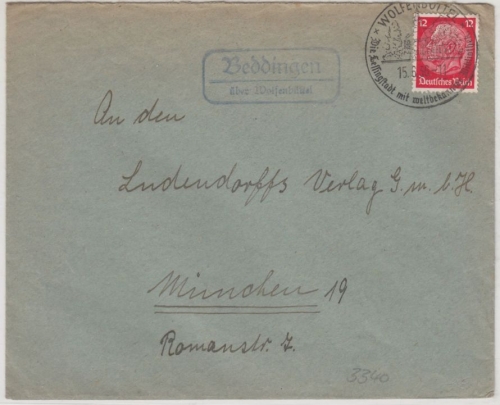 WOLFENBÜTTEL
12 12
Deutsches Reich
15.6
Die Lessingstadt mit weltbekannt
Beddingen
über Wolfenbüttel
An den
Ludendorffs Verlag G. m. b. H.
München 19
Romanstr. 7.
3340